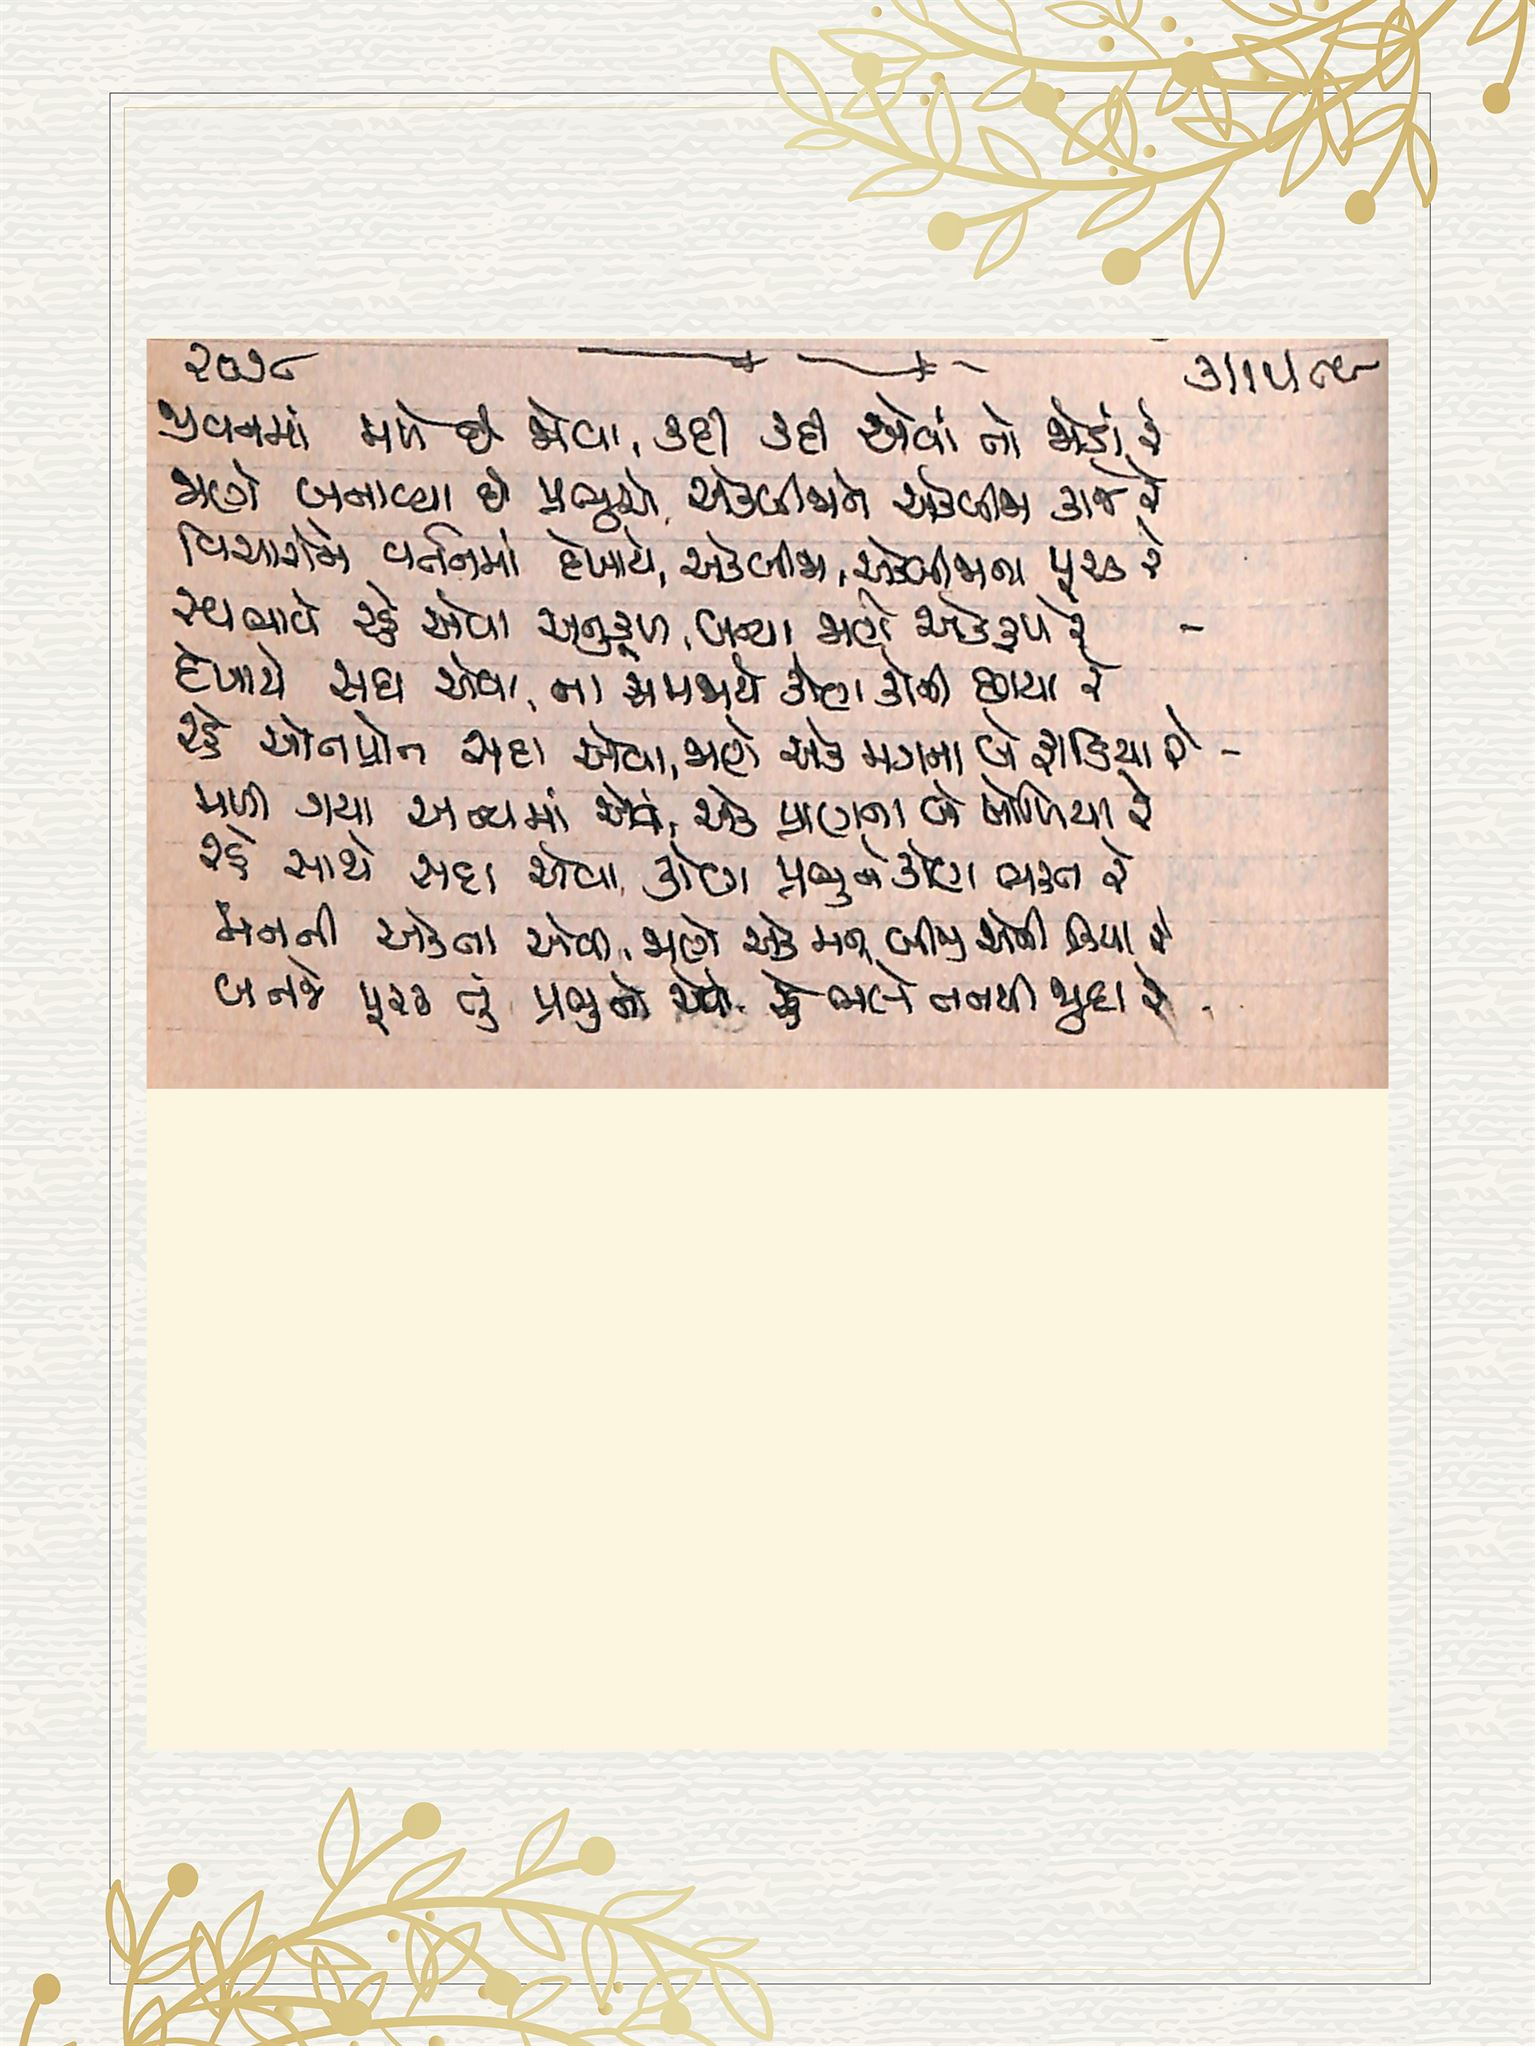 ૨૦૩૮ ૩।૧૫।૮૯
જીવનમાં મળે છે એવા, કદી કદી એવાં તો જોડાં રે
જાણે બનાવ્યા છે પ્રભુએ, એકબીજાને એકબીજા કાજ રે
વિચારોને વર્તનમાં દેખાયે, એકબીજા, એકબીજાના પૂરક રે
સ્વભાવે રહે એવા અનુકૂળ, બન્યા જાણે એકરૂપ રે -
દેખાયે સદા એવા, ના સમજાયે કોણ કોની છાયા રે
રહે ઓતપ્રોત સદા એવા, જાણે એક મગના બે ફાડિયા રે -
મળી ગયા અન્યમાં એવા, એક પ્રાણના બે ખોળિયા રે
રહે સાથે સદા એવા, કોણ પ્રભુ ને કોણ ભક્ત રે
મનની એકતા એવી, જાણે એક મન, બીજી એની ક્રિયા રે
બનજે પૂરક તું પ્રભુનો એવો, રહે ભલે તનથી જુદા રે